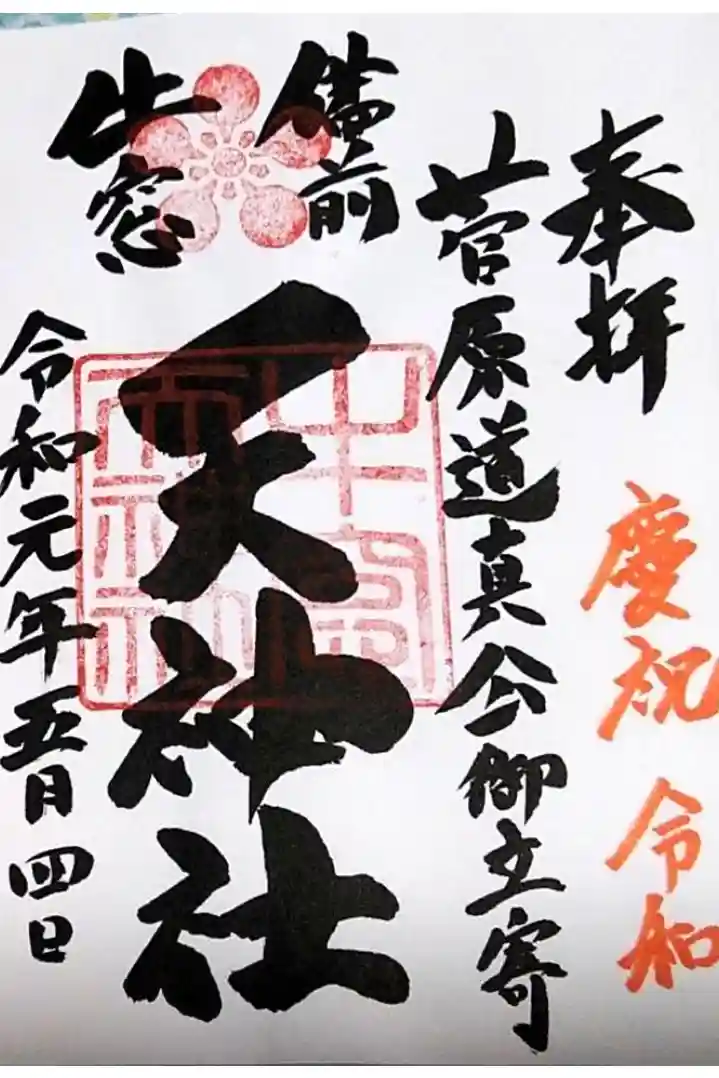 奉拝
慶祝 令和
菅原道真公御立寄
備前
牛窓
天神社
牛窓
天神社
令和元年五月四日